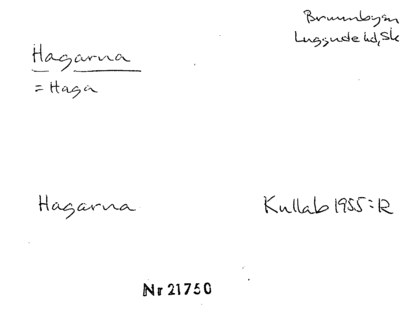 Brunnbysn
Luggude hd, Sk
Hagarna
= Haga
Hagarna Kullab 1955:12
Nr 21750